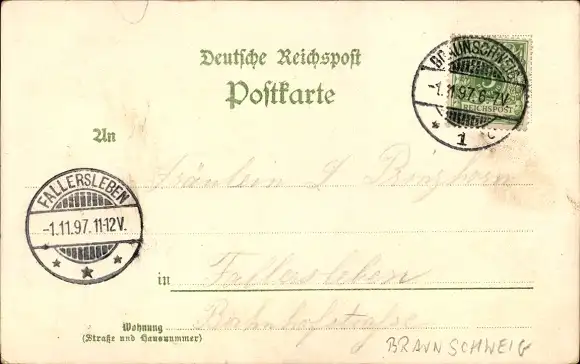 Deutsche Reichspost
Postkarte
BRAUNSCHWEIG
-1.11.97.6-7V.
* 1 c
REICHSPOST
An
Fräulein J
FALLERSLEBEN
-1.11.97.11-12V.
in Fallersleben
Bahnhofstraße
Wohnung
(Straße und Hausnummer)
BRAUNSCHWEIG